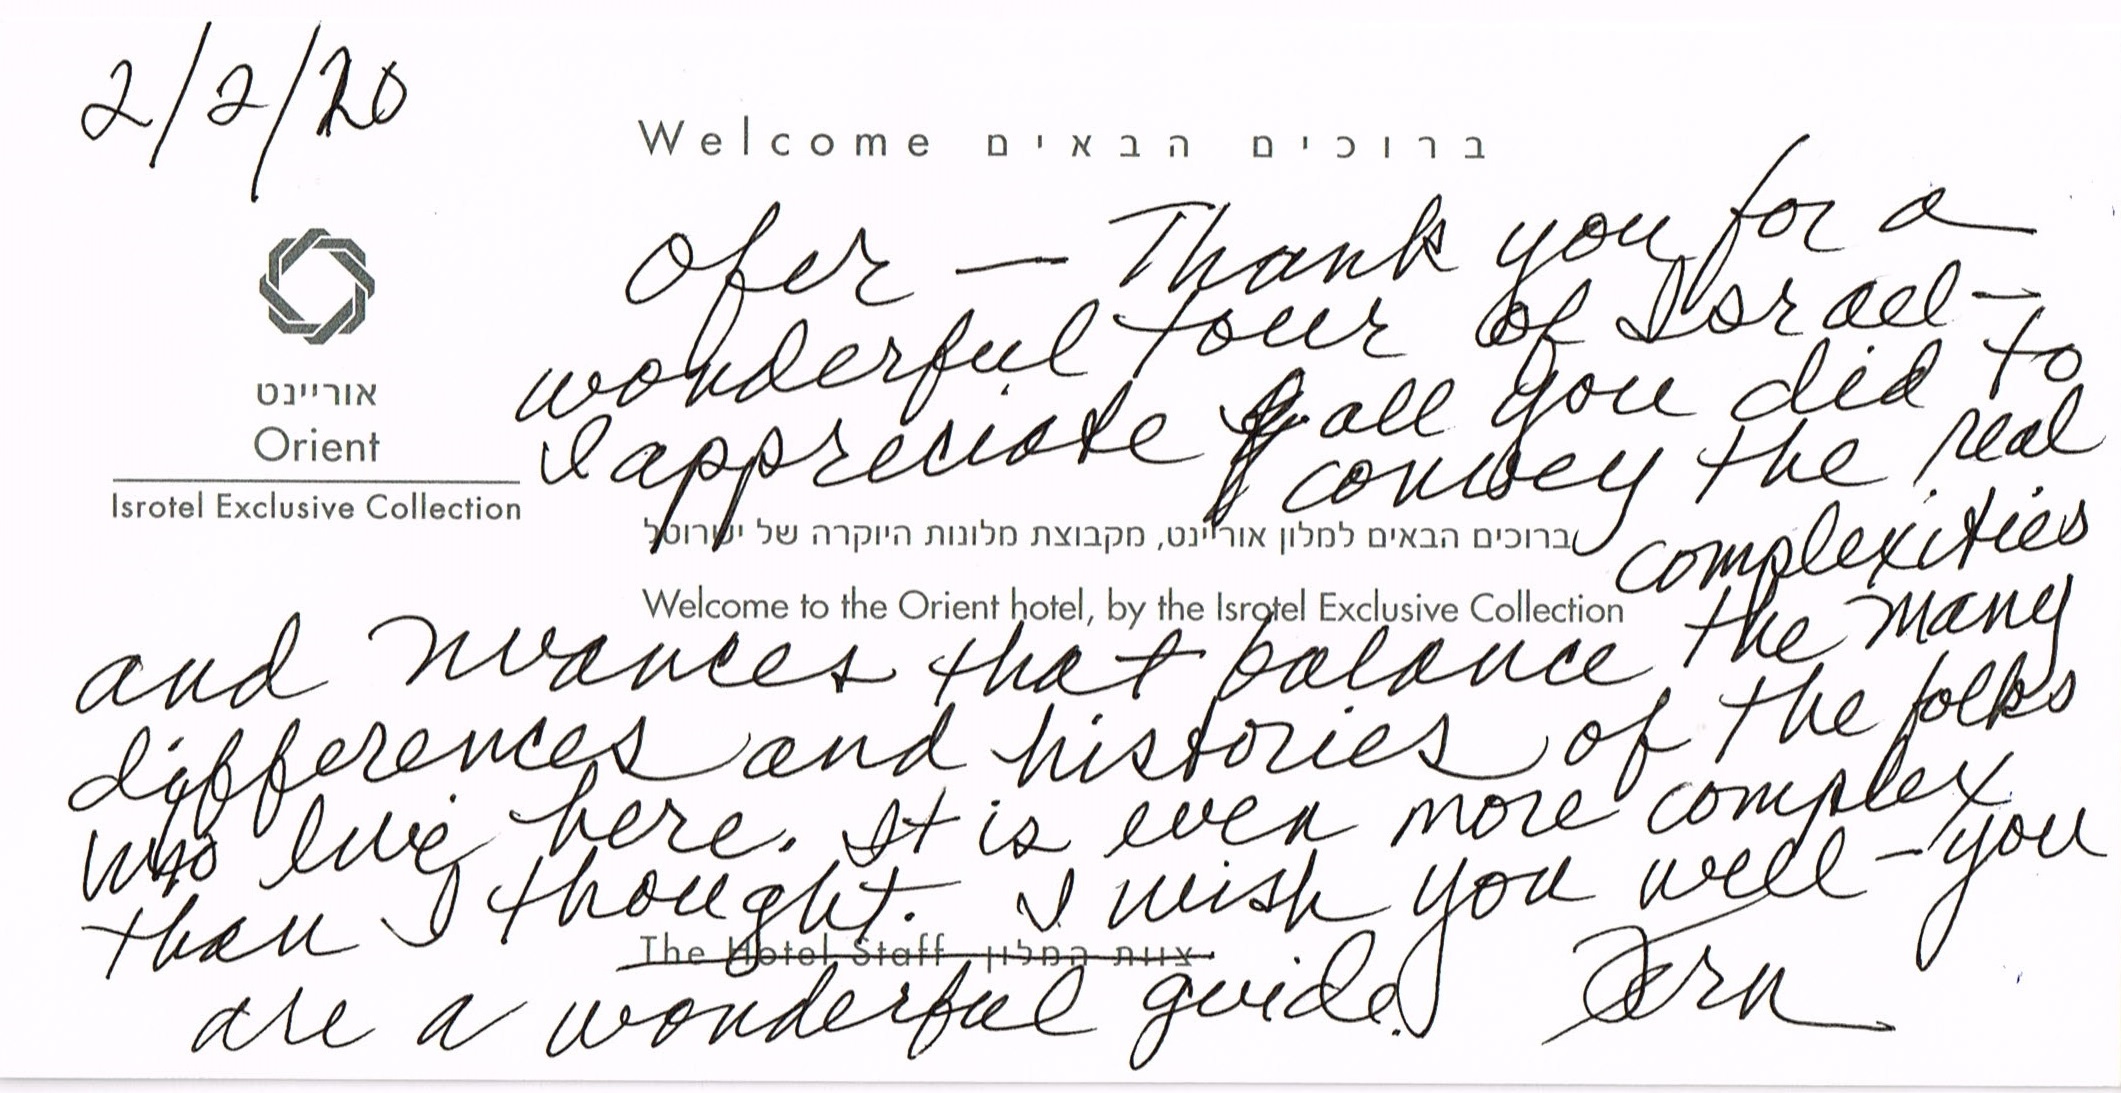 2/2/20
Welcome ברוכים הבאים
Ofer — Thank you for a
wonderful tour of Israel —
I appreciate all you did to
convey the real
complexities
אוריינט
Orient
Isrotel Exclusive Collection
ברוכים הבאים למלון אוריינט, מקבוצת מלונות היוקרה של ישרוטל
Welcome to the Orient hotel, by the Isrotel Exclusive Collection
and nuances that balance the many
differences and histories of the folks
who live here. It is even more complex
than I thought. I wish you well – you
The Hotel Staff צוות המלון
are a wonderful guide. Fern